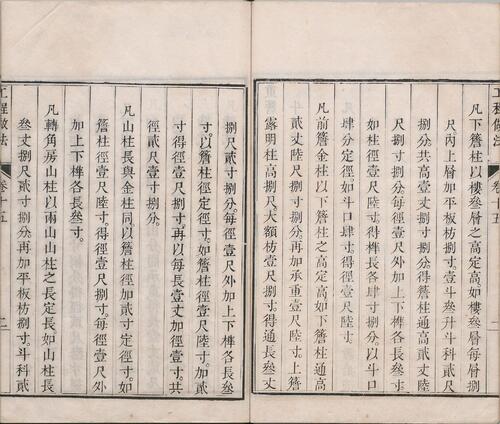 工程做法
卷十五
一
凡下簷柱以樓叄層之高定高如每層捌
尺內上層加平板枋捌寸壹斗叄升斗科貳尺
捌分共高壹丈捌寸捌分得簷柱通高貳丈陸
尺捌寸捌分每徑壹尺外加上下榫各長叄寸
如柱徑壹尺陸寸得榫長各肆寸捌分以斗口
肆分定徑如斗口肆寸得徑壹尺陸寸
凡前簷金柱以下簷柱之高定高如下簷柱高
貳丈陸尺捌寸捌分再加承重壹尺貳寸上簷
露明柱高捌尺大額枋壹尺捌寸得通長叄丈
捌尺貳寸捌分每徑壹尺外加上下榫各長叄
寸以簷柱徑定徑如簷柱徑壹尺陸寸加貳
寸得徑壹尺捌寸再以每長壹丈加徑壹寸共
徑貳尺壹寸捌分
凡山柱長與金柱同以簷柱徑加貳寸定徑如
簷柱徑壹尺陸寸得徑壹尺捌寸每徑壹尺外
加上下榫各長叄寸
凡轉角房山柱以兩山山柱之長定長如山柱長
叄丈捌尺貳寸捌分再加平板枋捌寸斗科貳
工程做法
卷十五
二